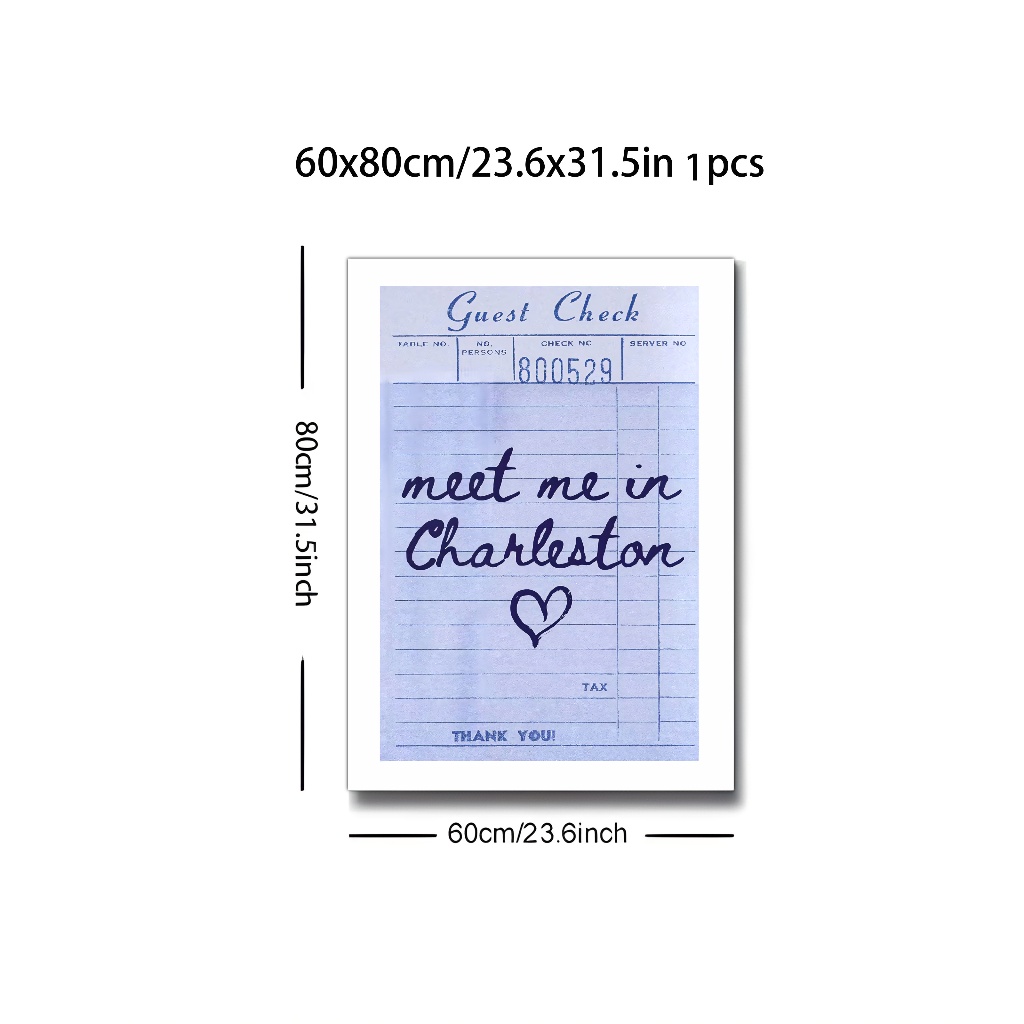 60x80cm/23.6x31.5in 1pcs
80cm/31.5inch
Guest Check
TABLE NO.
NO. PERSONS
CHECK NO
SERVER NO
800529
meet me in
Charleston
TAX
THANK YOU!
60cm/23.6inch